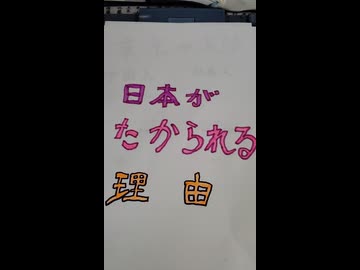 日本が
たかられる
理由